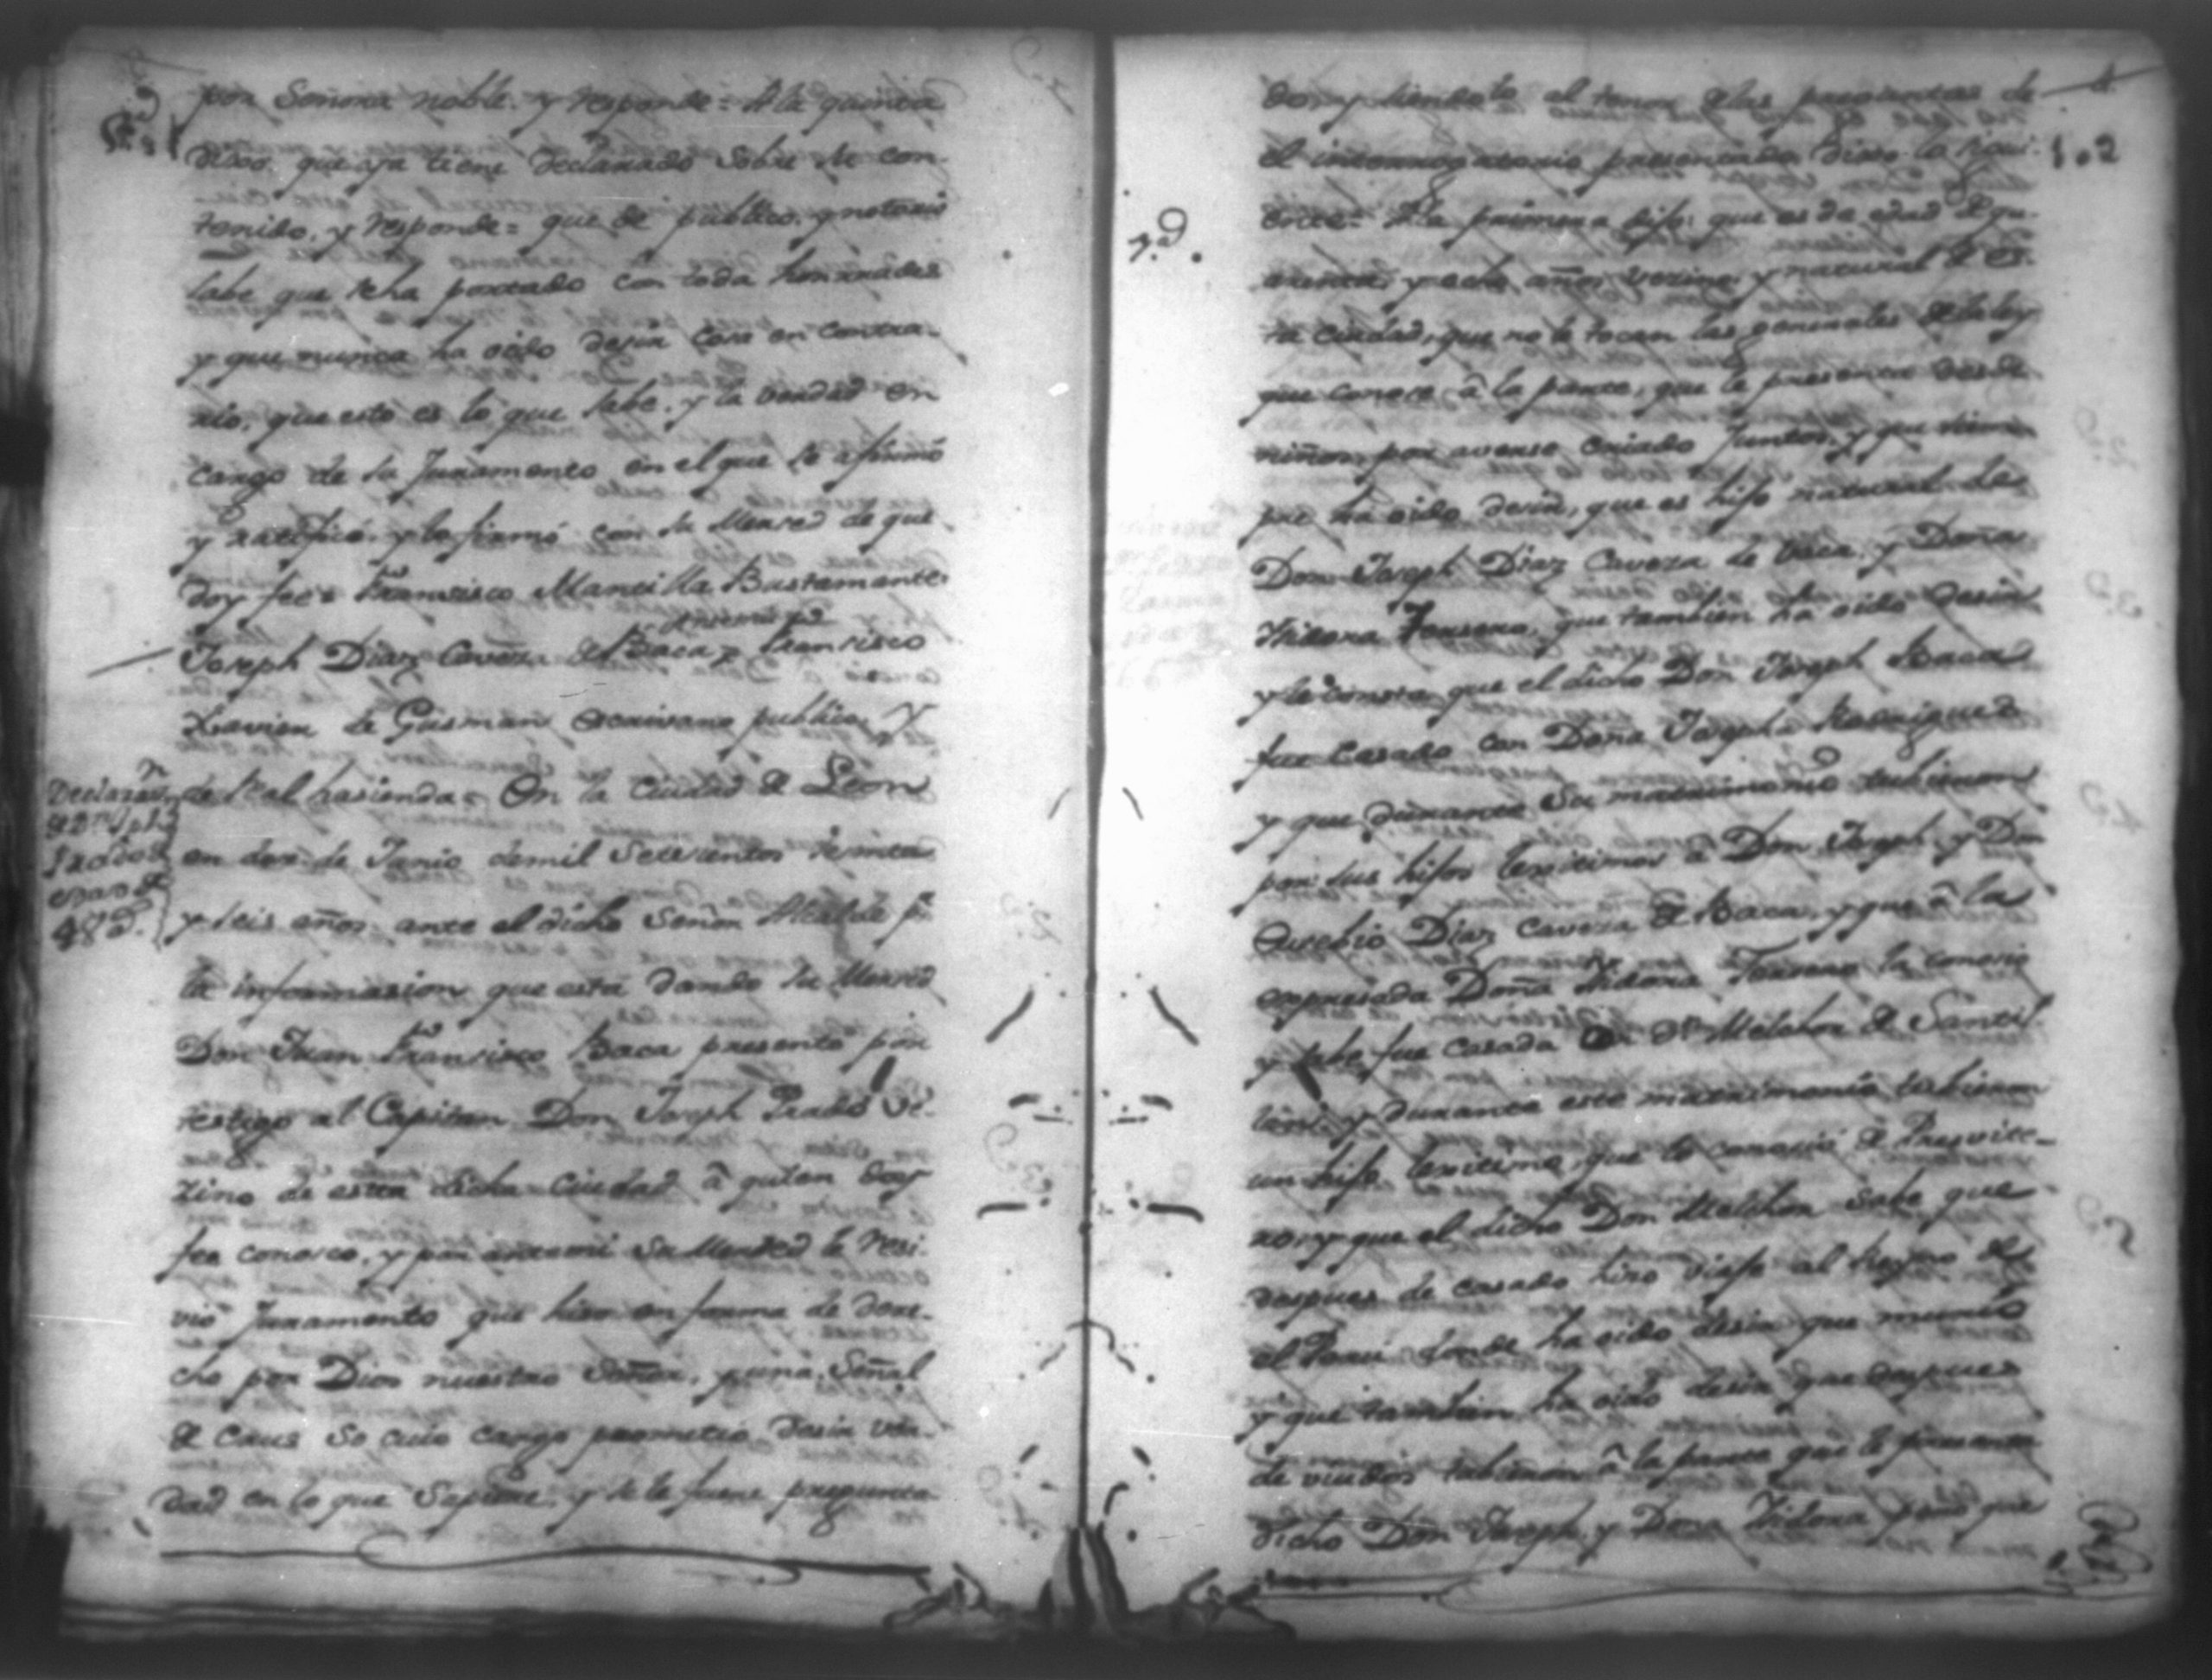 por Señora noble. y responde = A la quinta
dixo, que ya tiene declarado sobre su con-
tenido, y responde = que de publico y notorio
sabe que se ha portado con toda honrrades
y que nunca ha oido desir cosa en contra-
rio, que esto es lo que sabe, y la verdad en
cargo de su Juramento en el que se afirmó
y ratificó, y lo firmó con su Merced de que
doy fee = Francisco Mancilla Bustamante
Antemi
Joseph Diaz Caveza de Baca = Francisco
Xavier de Gusman Escrivano publico, y
de Real hasienda = En la Ciudad de Leon
en dos de Junio de mil Setesientos
y seis años, ante el dicho Señor Alcalde p.ª
la informasion que está dando su Merced
Don Juan Francisco Baca presentó por
testigo al Capitan Don Joseph Prado Ve-
zino de esta dicha Ciudad â quien doy
fee conosco, y por antemi Su Merced le resi-
vió Juramento que hizo en forma de dere-
cho por Dios nuestro Señor, y una Señal
de Cruz so cuio cargo prometió desir ver-
dad en lo que Supiere, y se le fuere pregunta
do, y siendole el tenor de las preguntas de
el interrogatorio presentado dixo lo sigui-
ente = A la primera dijo: que es de edad de qu-
arenta y ocho años vezino y natural de es-
ta Ciudad, que no le tocan las generales de la ley
que conose â la parte, que le presenta desde
niños por averse criado Juntos, y que siem
pre ha oido desir, que es hijo natural de
Don Joseph Diaz Caveza de Vaca, y Doña
Isidora que tambien ha oido desir
y le consta que el dicho Don Joseph Baca
fue casado con Doña Josepha Rodrigues
y que durante su matrimonio tubieron
por sus hijos lexitimos â Don Joseph, y Don
Eusebio Diaz Caveza de Baca, y que â la
expresada Doña Isidora la conosio
y sabe fue casada con Dn Melchor de Santil
lan, y durante este matrimonio tubieron
un hijo lexitimo, que lo conosió de Presvite-
ro, y que el dicho Don Melchor sabe que
despues de casado hizo viaje al Reyno de
el Perú donde ha oido desir que murió
y que tambien ha oido desir que despues
de viudos tubieron â la parte que le presenta
dicho Don Joseph, y Doña Isidora, pero que